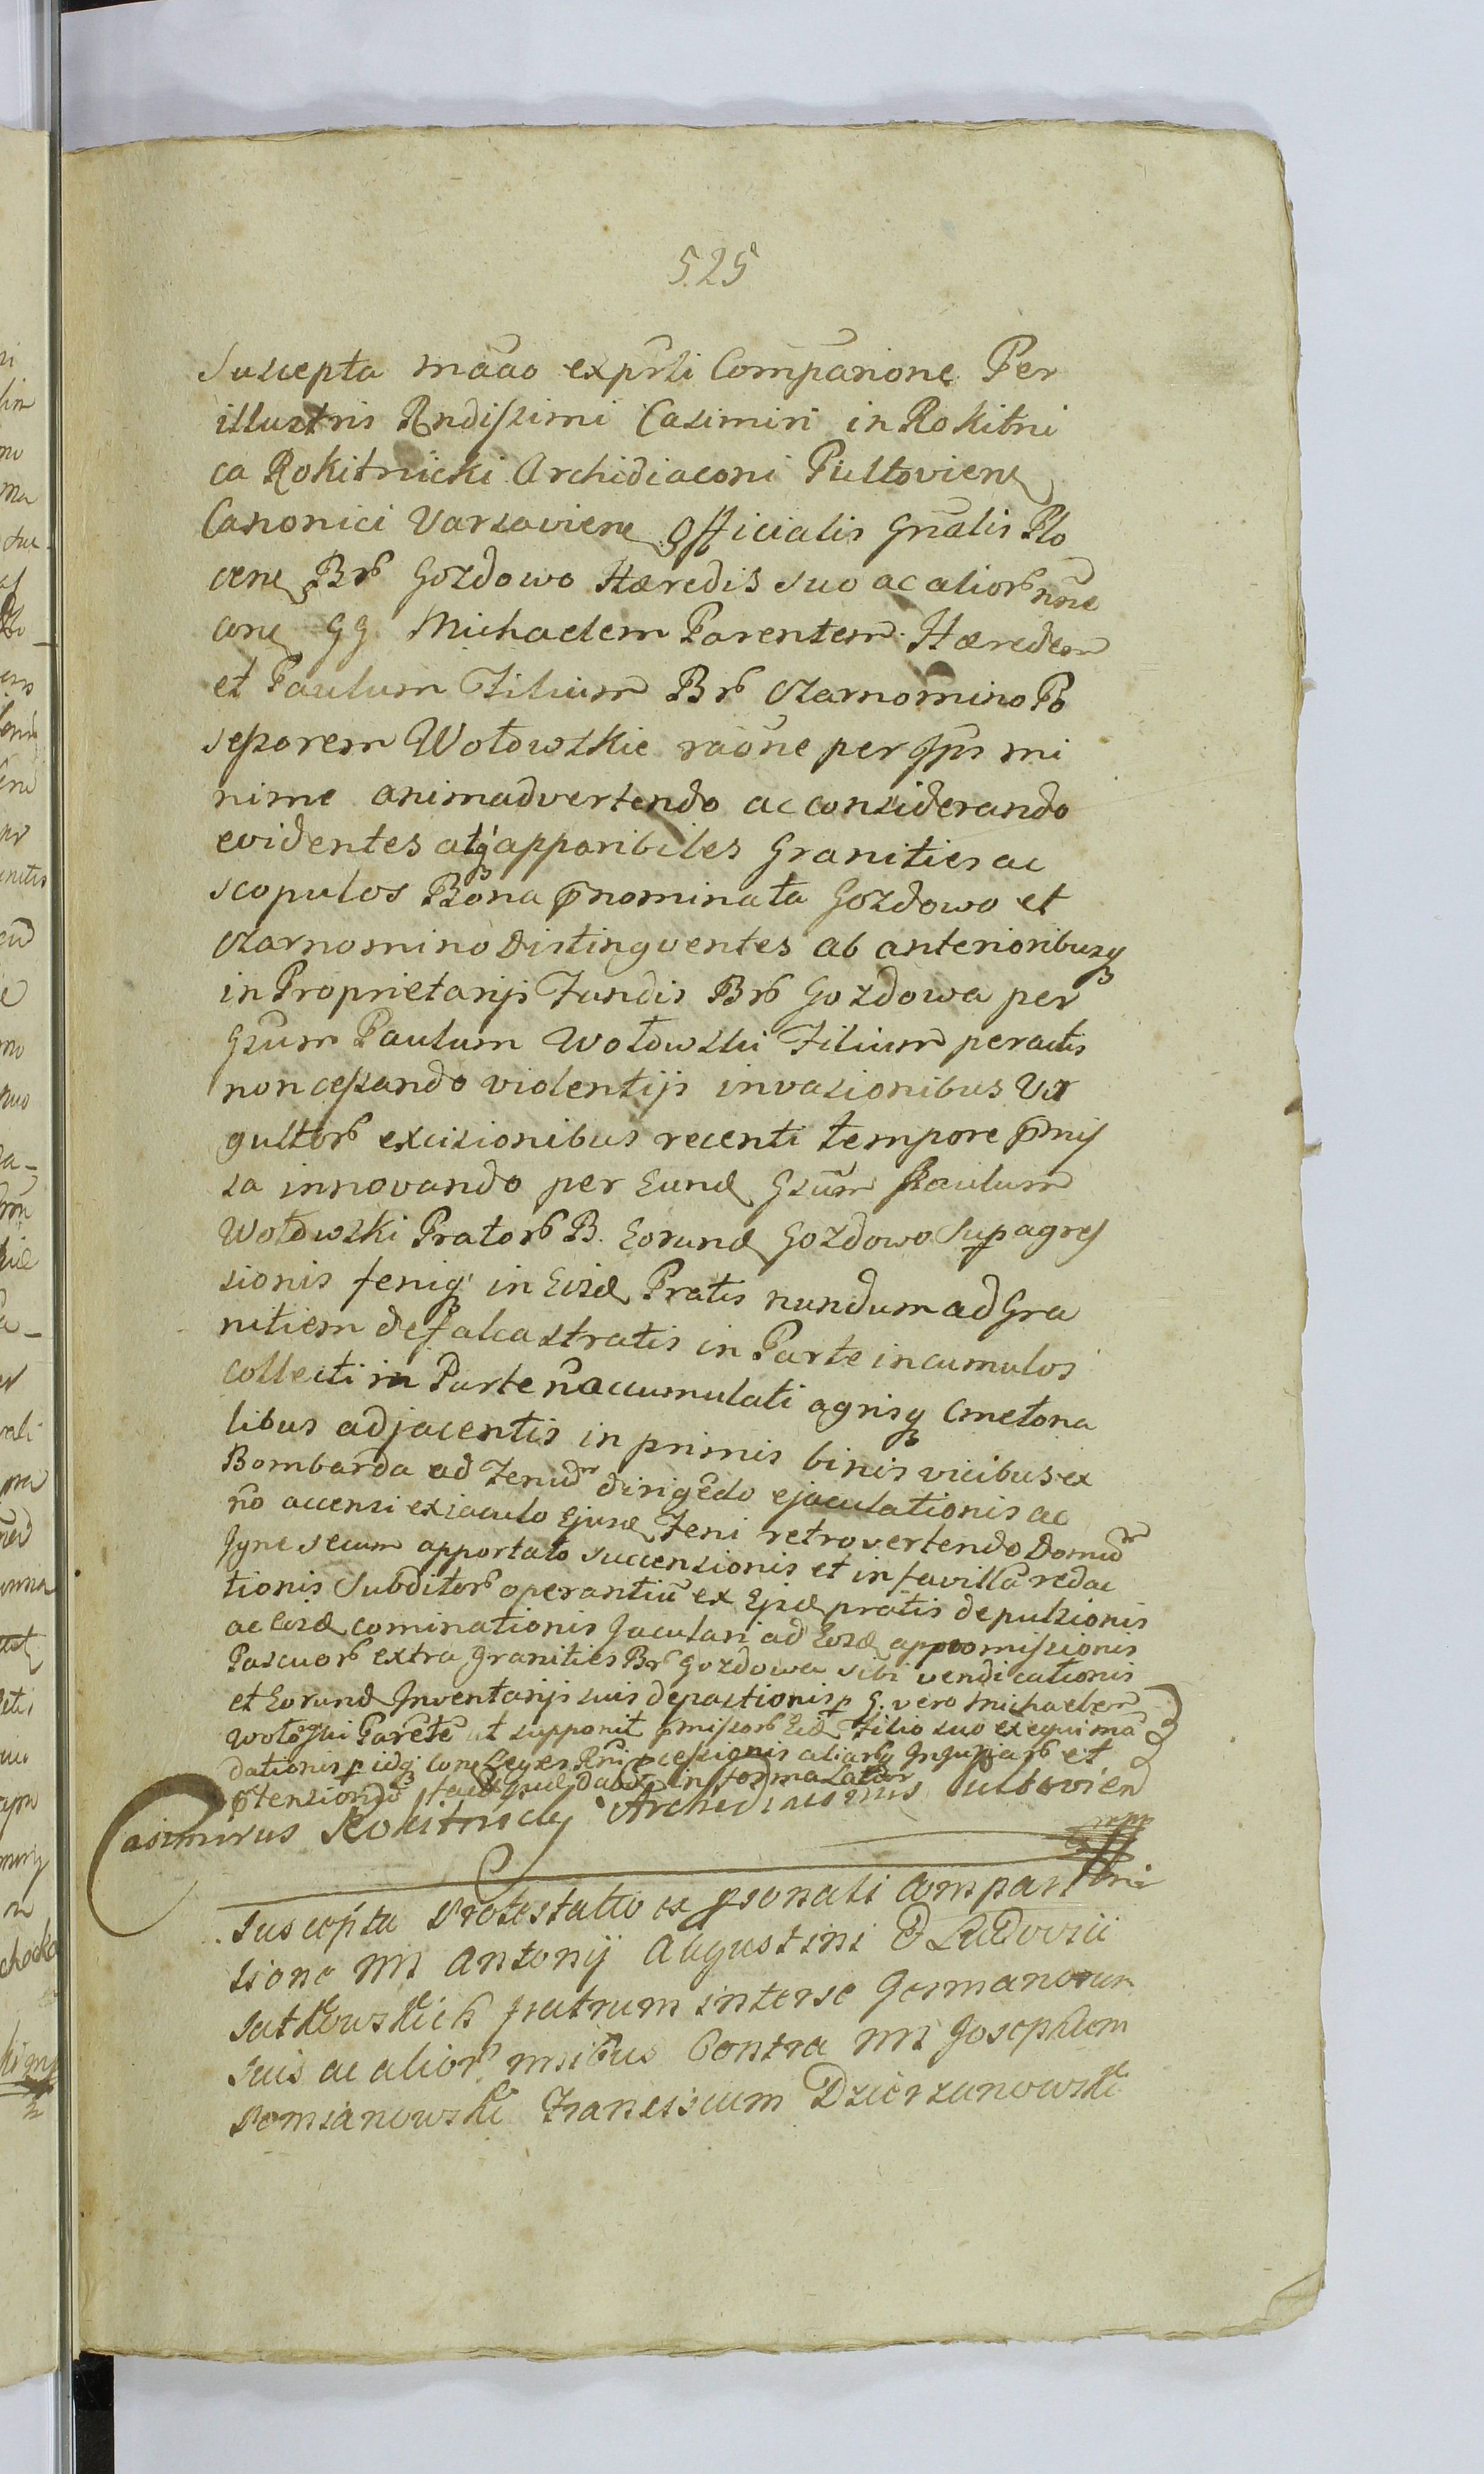 525
Suscepta mãao exprli Comparione Per
illustris Rndissimi Casimiri in Rokitni
ca Rokitnicki Archidiaconi Pultovien
Canonici Varsavien Officialis Gnalis Plo
cen Brb Gozdowo Hæredis suo ac aliorb nne
cone GG Michaelem Parentem Hæredem
et Paulum Filium Brb Czarnomino Po
sessorem Wołowskie raone per Ipis mi
nime animadvertendo ac considerando
evidentes atq apparibiles Granities ac
scopulos Bona pnominata Gozdowo et
Czarnomino Distingventes ab anterioribusq
in Proprietarijs Fundis Brb Gozdowa per
Gsum Paulum Wołowski Filium peractis
non cessando violentijs invasionibus Vir
gultorb excisionibus recenti tempore pmis
sa innovando per Eund Gsum Paulum
Wołowski Pratorb B. Eorund Gozdowo Supagres
sionis feniq in Eisd Pratis nundum ad Gra
nitiem defalcastratis in Parte in cumulos
collecti in Parte no accumulati agrisq Cmetona
libus adjacentis in primis binis vicibus ex
Bombarda ad Fenum dirigedo ejaculationis ac
no accensi ex jaculo Ejusd Feni retrovertendo Domum
Igne secum apportato succensionis et in favillã redac
tionis Subditorb operantiu ex Ejsd pratis depulsionis
ac Eisd cominationis Jaculari ad Eosd appromissionis
Pascuorb extra Granities Brb Gozdowa sibi vendicationis
et Eorund Inventarijs suis depastionis p G. vero Michaelem
Wołowski Parete ut supponit pmissorb Eid Filio suo exequi mã
dationis p idq con Leges Rni pcessionis aliarq Injuriarb et
ptensionũ in forma Latior
Casimirus Rokitnicki Archidiaconus Pultovien
mpp
Suscepta Protestatio ex psonali Compari
tione MM Antonij Augustini & Ludovici
Sutkowskich fratrum inter se Germanorum
suis ac aliorb nnibus Contra MM Josephum
Romianowski Franciscum Dzierzanowski